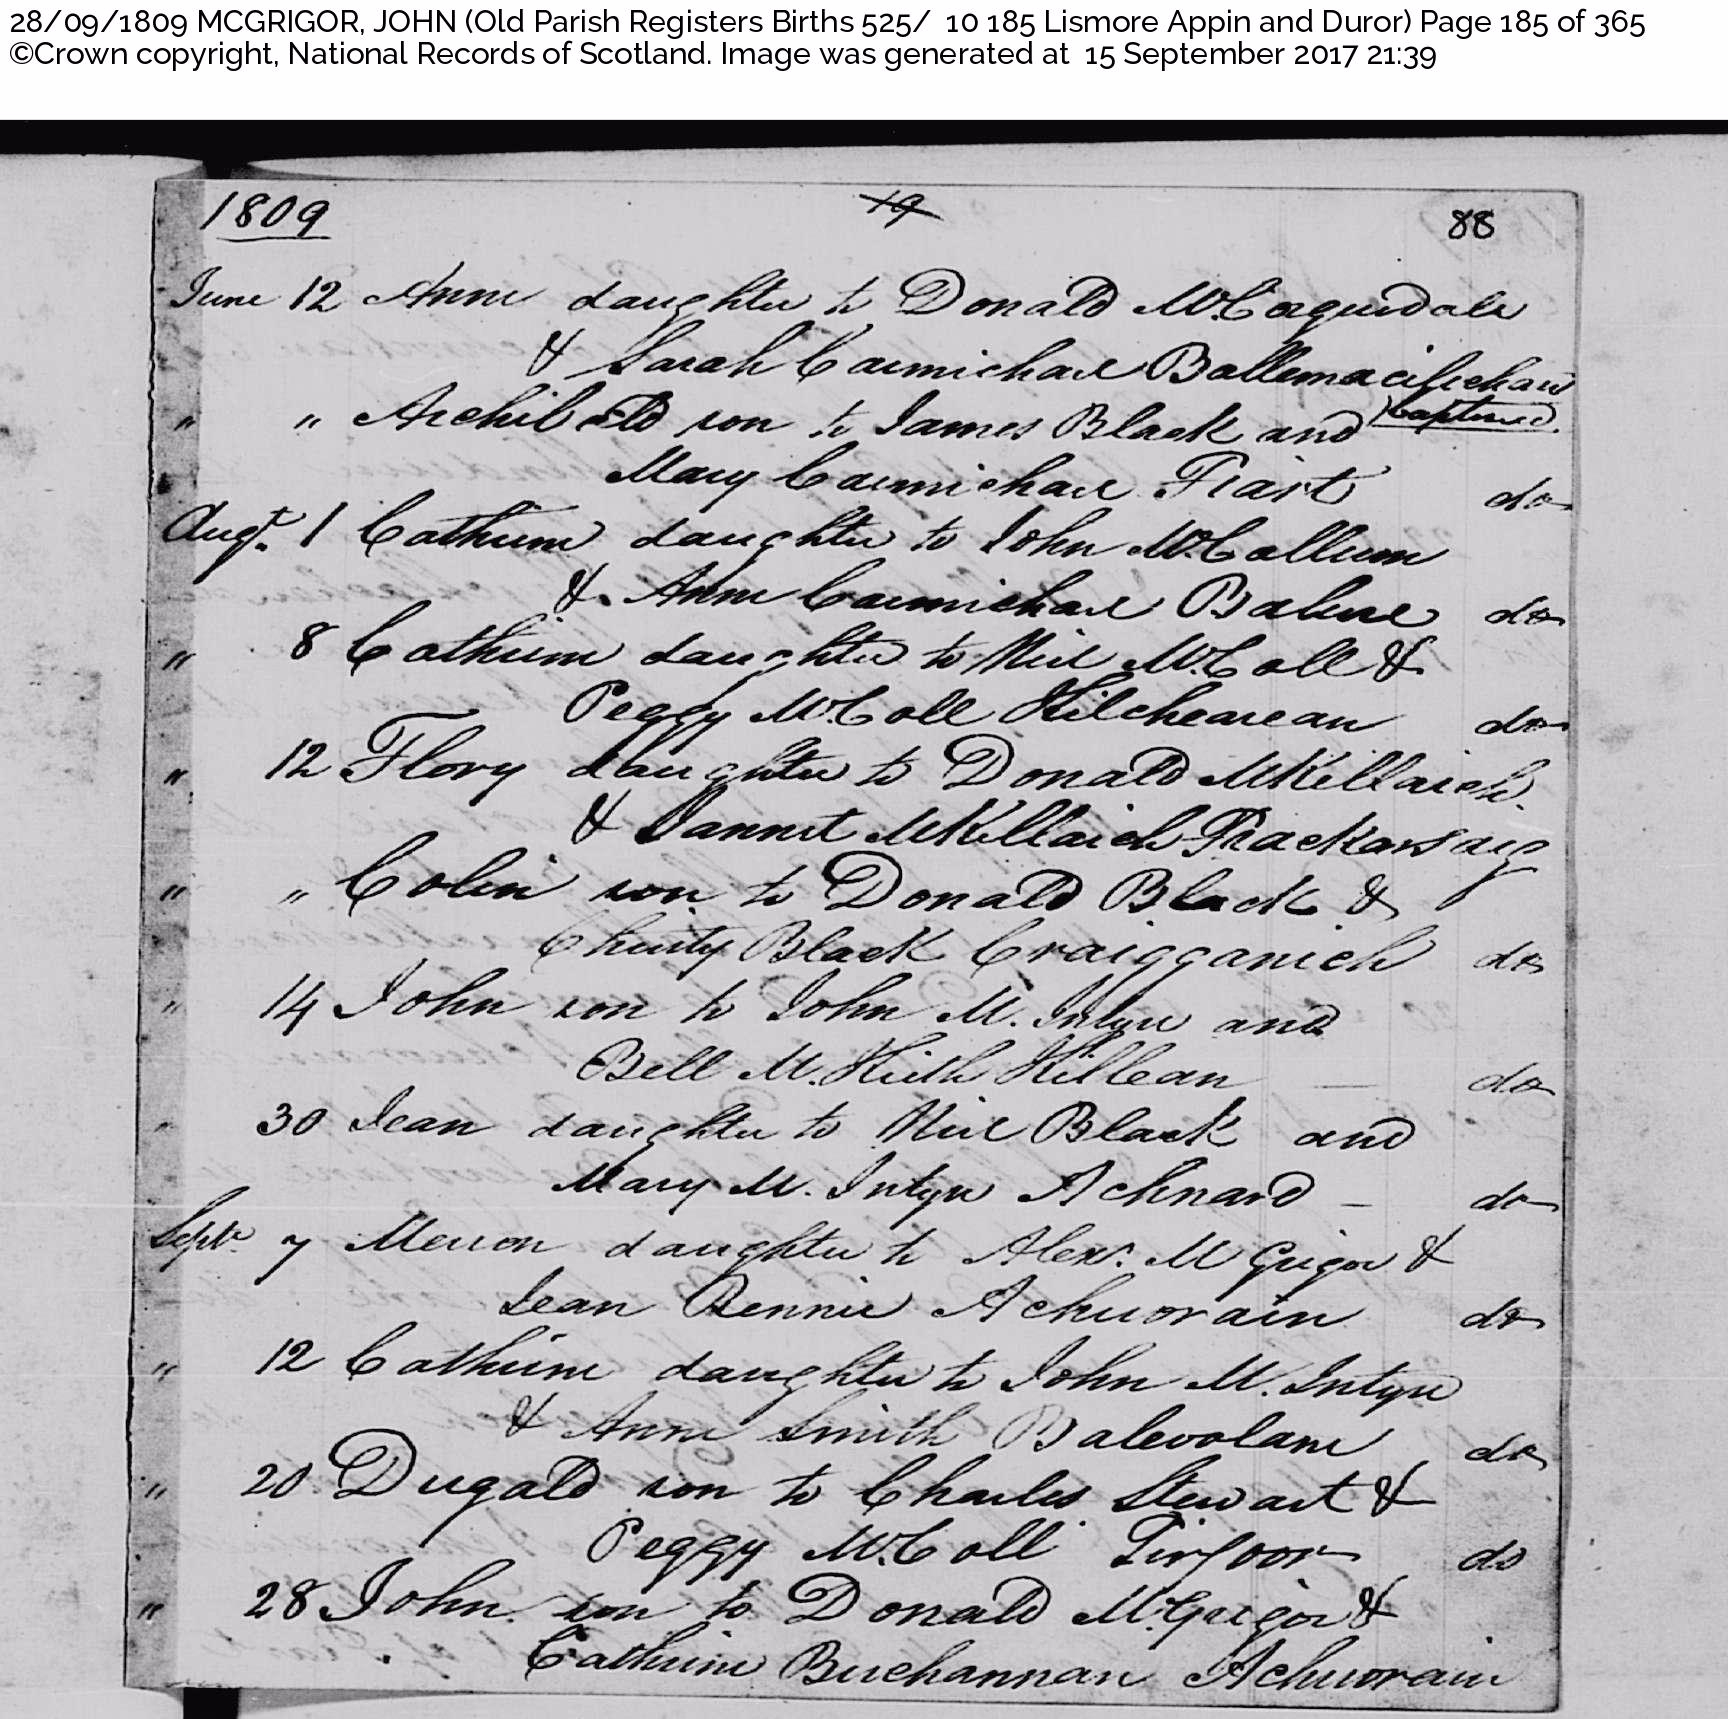 28/09/1809 MCGRIGOR, JOHN (Old Parish Registers Births 525/ 10 185 Lismore Appin and Duror) Page 185 of 365
©Crown copyright, National Records of Scotland. Image was generated at 15 September 2017 21:39
1809 19 88
June 12 Anne daughter to Donald McCorquodale
& Sarah Carmichael
" " Archibald son to James Black and baptised
Mary Carmichael Fiart do
Augt. 1 Catherine daughter to John McCallum
& Anne Carmichael Balure do
" 8 Catherine daughter to Neil McColl &
Peggy McColl Kilchearean do
" 12 Flory daughter to Donald McKellaich
& Jannet McKellaich Frackarsaig
" " Colin son to Donald Black &
Christy Black Craigganich do
" 14 John son to John M. Intyre and
Bell M. Keith Killean — do
" 30 Jean daughter to Neil Black and
Mary M. Intyre Achnard – do
Septr. 7 Merron daughter to Alexr. M Grigor &
Jean Rennie Achuorain do
" 12 Catherine daughter to John M. Intyre
& Anne Smith Balevolane do
" 20 Dugald son to Charles Stewart &
Peggy McColl Tirfoor do
" 28 John son to Donald McGrigor &
Catherine Buchannan Achuorain